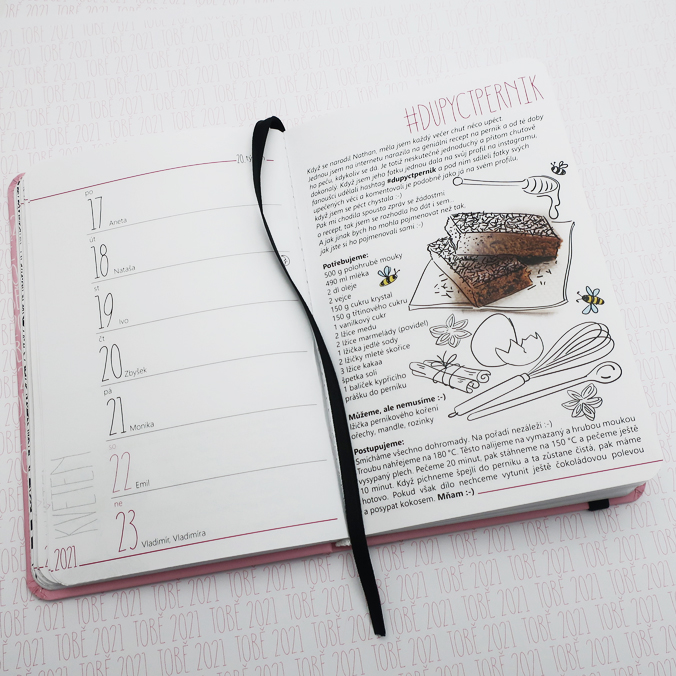 20. týden
po
17 Aneta
út
18 Nataša
st
19 Ivo
čt
20 Zbyšek
pá
21 Monika
so
22 Emil
ne
23 Vladimír, Vladimíra
KVĚTEN
2021
#DUPYCTPERNIK
Když se narodil Nathan, měla jsem každý večer chuť něco upéct.
Jednou jsem na internetu narazila na geniální recept na perník a od té doby
ho peču, kdykoliv se dá. Je totiž neskutečně jednoduchý a přitom chuťově
dokonalý. Když jsem jeho fotku jednou dala na svůj profil na instagramu,
fanoušci udělali hashtag #dupyctpernik a pod ním sdíleli fotky svých
upečených věcí a komentovali je podobně jako já na svém profilu,
když jsem se péct chystala :-)
Pak mi chodila spousta zpráv se žádostmi
o recept, tak jsem se rozhodla ho dát i sem.
A jak jinak bych ho mohla pojmenovat než tak,
jak jste si ho pojmenovali sami :-)
Potřebujeme:
500 g polohrubé mouky
490 ml mléka
2 dl oleje
2 vejce
150 g cukru krystal
150 g třtinového cukru
1 vanilkový cukr
2 lžíce medu
2 lžíce marmelády (povidel)
1 lžička jedlé sody
2 lžičky mleté skořice
3 lžíce kakaa
špetka soli
1 balíček kypřicího
prášku do perníku
Můžeme, ale nemusíme :-)
lžička perníkového koření
ořechy, mandle, rozinky
Postupujeme:
Smícháme všechno dohromady. Na pořadí nezáleží :-)
Troubu nahřejeme na 180 °C. Těsto nalijeme na vymazaný a hrubou moukou
vysypaný plech. Pečeme 20 minut, pak stáhneme na 150 °C a pečeme ještě
10 minut. Když píchneme špejlí do perníku a ta zůstane čistá, pak máme
hotovo. Pokud však dílo nechceme vytunit ještě čokoládovou polevou
a posypat kokosem. Mňam :-)
TOBĚ 2021 TOBĚ 2021 TOBĚ 2021